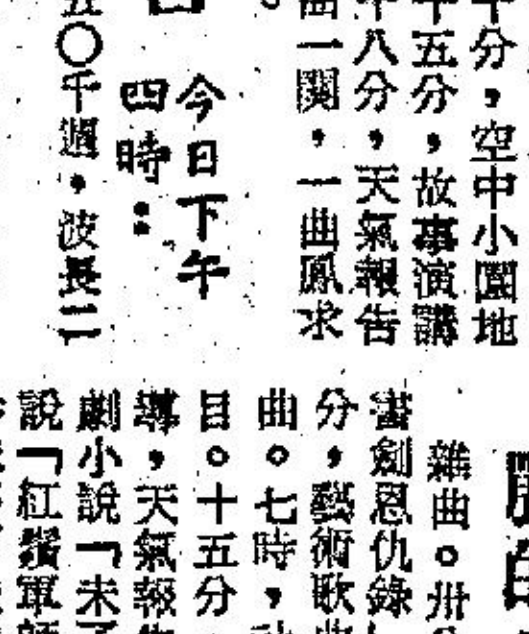 十分，空中小園地
十五分，故事演講
十八分，天氣報告
曲一闋，一曲鳳求
。
今日下午
四時：
五〇千週，波長二
雜曲。卅分
書劍恩仇錄
分，藝術歌曲
曲。七時，
目。十五分
導，天氣報告
劇小說「未了
說「紅鬃軍師